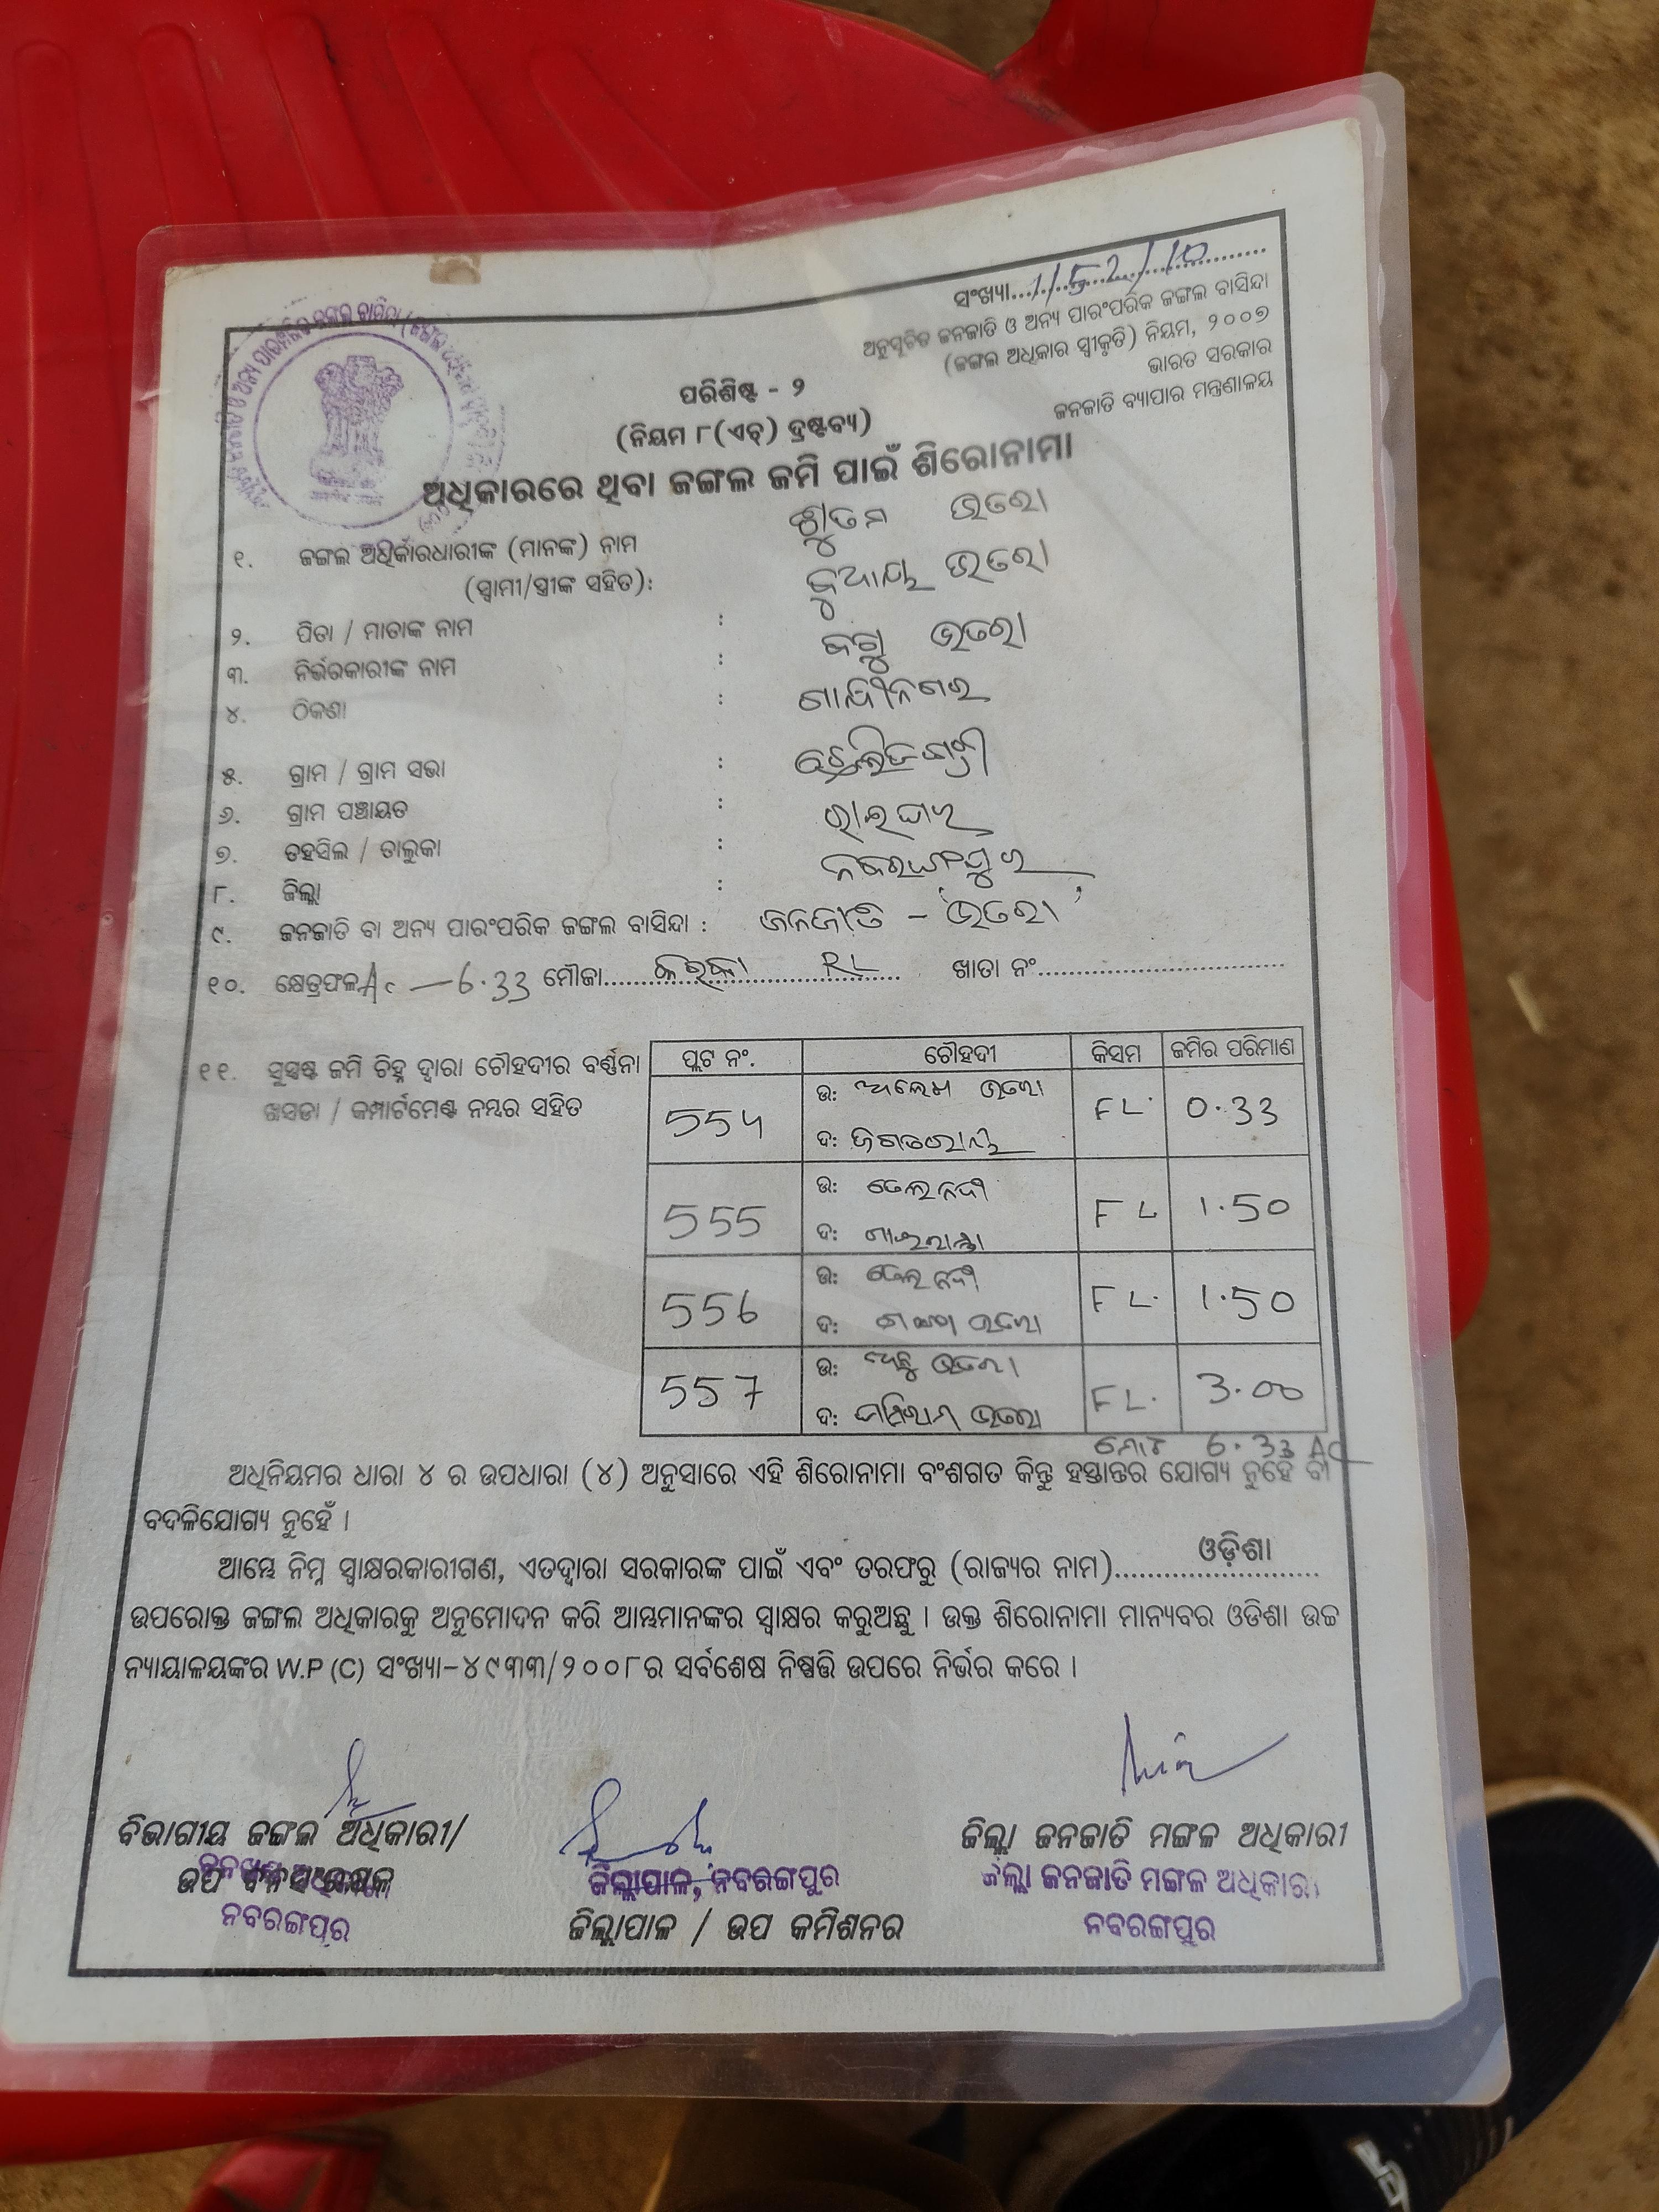 ସଂଖ୍ୟା...1/52/10...
ଅନୁସୂଚିତ ଜନଜାତି ଓ ଅନ୍ୟ ପାରଂପରିକ ଜଙ୍ଗଲ ବାସିନ୍ଦା
(ଜଙ୍ଗଲ ଅଧିକାର ସ୍ୱୀକୃତି) ନିୟମ, ୨୦୦୭
ଭାରତ ସରକାର
ଜନଜାତି ବ୍ୟାପାର ମନ୍ତ୍ରଣାଳୟ
ପରିଶିଷ୍ଟ - ୨
(ନିୟମ ୮(ଏଚ୍) ଦ୍ରଷ୍ଟବ୍ୟ)
ଅଧିକାରରେ ଥିବା ଜଙ୍ଗଲ ଜମି ପାଇଁ ଶିରୋନାମା
୧. ଜଙ୍ଗଲ ଅଧିକାରଧାରୀଙ୍କ (ମାନଙ୍କ) ନାମ ଭତରା
(ସ୍ୱାମୀ/ସ୍ତ୍ରୀଙ୍କ ସହିତ):
୨. ପିତା / ମାତାଙ୍କ ନାମ : ଭତରା
୩. ନିର୍ଭରକାରୀଙ୍କ ନାମ : ଭତରା
୪. ଠିକଣା : ଗାନ୍ଧୀନଗର
୫. ଗ୍ରାମ / ଗ୍ରାମ ସଭା :
୬. ଗ୍ରାମ ପଞ୍ଚାୟତ :
୭. ତହସିଲ / ତାଲୁକା : ରାଇଘର
୮. ଜିଲ୍ଲା : ନବରଙ୍ଗପୁର
୯. ଜନଜାତି ବା ଅନ୍ୟ ପାରଂପରିକ ଜଙ୍ଗଲ ବାସିନ୍ଦା : ଜନଜାତି - 'ଭତରା'
୧୦. କ୍ଷେତ୍ରଫଳ Ac - 6.33 ମୌଜା............ RL ଖାତା ନଂ...............
୧୧. ସୁସ୍ପଷ୍ଟ ଜମି ଚିହ୍ନ ଦ୍ୱାରା ଚୌହଦୀର ବର୍ଣ୍ଣନା
ଖସଡା / କମ୍ପାର୍ଟମେଣ୍ଟ ନମ୍ବର ସହିତ
ପ୍ଲଟ ନଂ. ଚୌହଦୀ କିସମ ଜମିର ପରିମାଣ
554 ଉ: ଅଲେଖ ଭତରା FL. 0.33
ଦ:
555 ଉ: ତେଲନଦୀ FL 1.50
ଦ:
556 ଉ: ତେଲନଦୀ FL. 1.50
ଦ: ଭତରା
557 ଉ: ଭତରା FL. 3.00
ଦ: ଭତରା
ମୋଟ 6.33 AC
ଅଧିନିୟମର ଧାରା ୪ ର ଉପଧାରା (୪) ଅନୁସାରେ ଏହି ଶିରୋନାମା ବଂଶଗତ କିନ୍ତୁ ହସ୍ତାନ୍ତର ଯୋଗ୍ୟ ନୁହେଁ ବା
ବଦଳିଯୋଗ୍ୟ ନୁହେଁ ।
ଆମ୍ଭେ ନିମ୍ନ ସ୍ୱାକ୍ଷରକାରୀଗଣ, ଏତଦ୍ୱାରା ସରକାରଙ୍କ ପାଇଁ ଏବଂ ତରଫରୁ (ରାଜ୍ୟର ନାମ)......ଓଡ଼ିଶା......
ଉପରୋକ୍ତ ଜଙ୍ଗଲ ଅଧିକାରକୁ ଅନୁମୋଦନ କରି ଆମ୍ଭମାନଙ୍କର ସ୍ୱାକ୍ଷର କରୁଅଛୁ । ଉକ୍ତ ଶିରୋନାମା ମାନ୍ୟବର ଓଡିଶା ଉଚ୍ଚ
ନ୍ୟାୟାଳୟଙ୍କର W.P (C) ସଂଖ୍ୟା-୪୯୩୩/୨୦୦୮ର ସର୍ବଶେଷ ନିଷ୍ପତ୍ତି ଉପରେ ନିର୍ଭର କରେ ।
ବିଭାଗୀୟ ଜଙ୍ଗଲ ଅଧିକାରୀ/
ଉପ ବନସଂରକ୍ଷକ
ନବରଙ୍ଗପୁର
ଜିଲ୍ଲାପାଳ, ନବରଙ୍ଗପୁର
ଜିଲ୍ଲାପାଳ / ଉପ କମିଶନର
ଜିଲ୍ଲା ଜନଜାତି ମଙ୍ଗଳ ଅଧିକାରୀ
ଜିଲ୍ଲା ଜନଜାତି ମଙ୍ଗଳ ଅଧିକାରୀ
ନବରଙ୍ଗପୁର